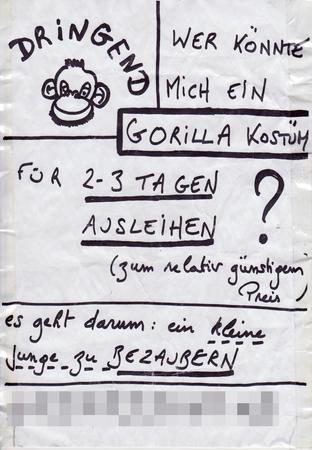 DRINGEND
WER KÖNNTE
MICH EIN
GORILLA KOSTÜM
FÜR 2-3 TAGEN
AUSLEIHEN ?
(zum relativ günstigem
Preis)
es geht darum: ein kleine
Junge zu BEZAUBERN